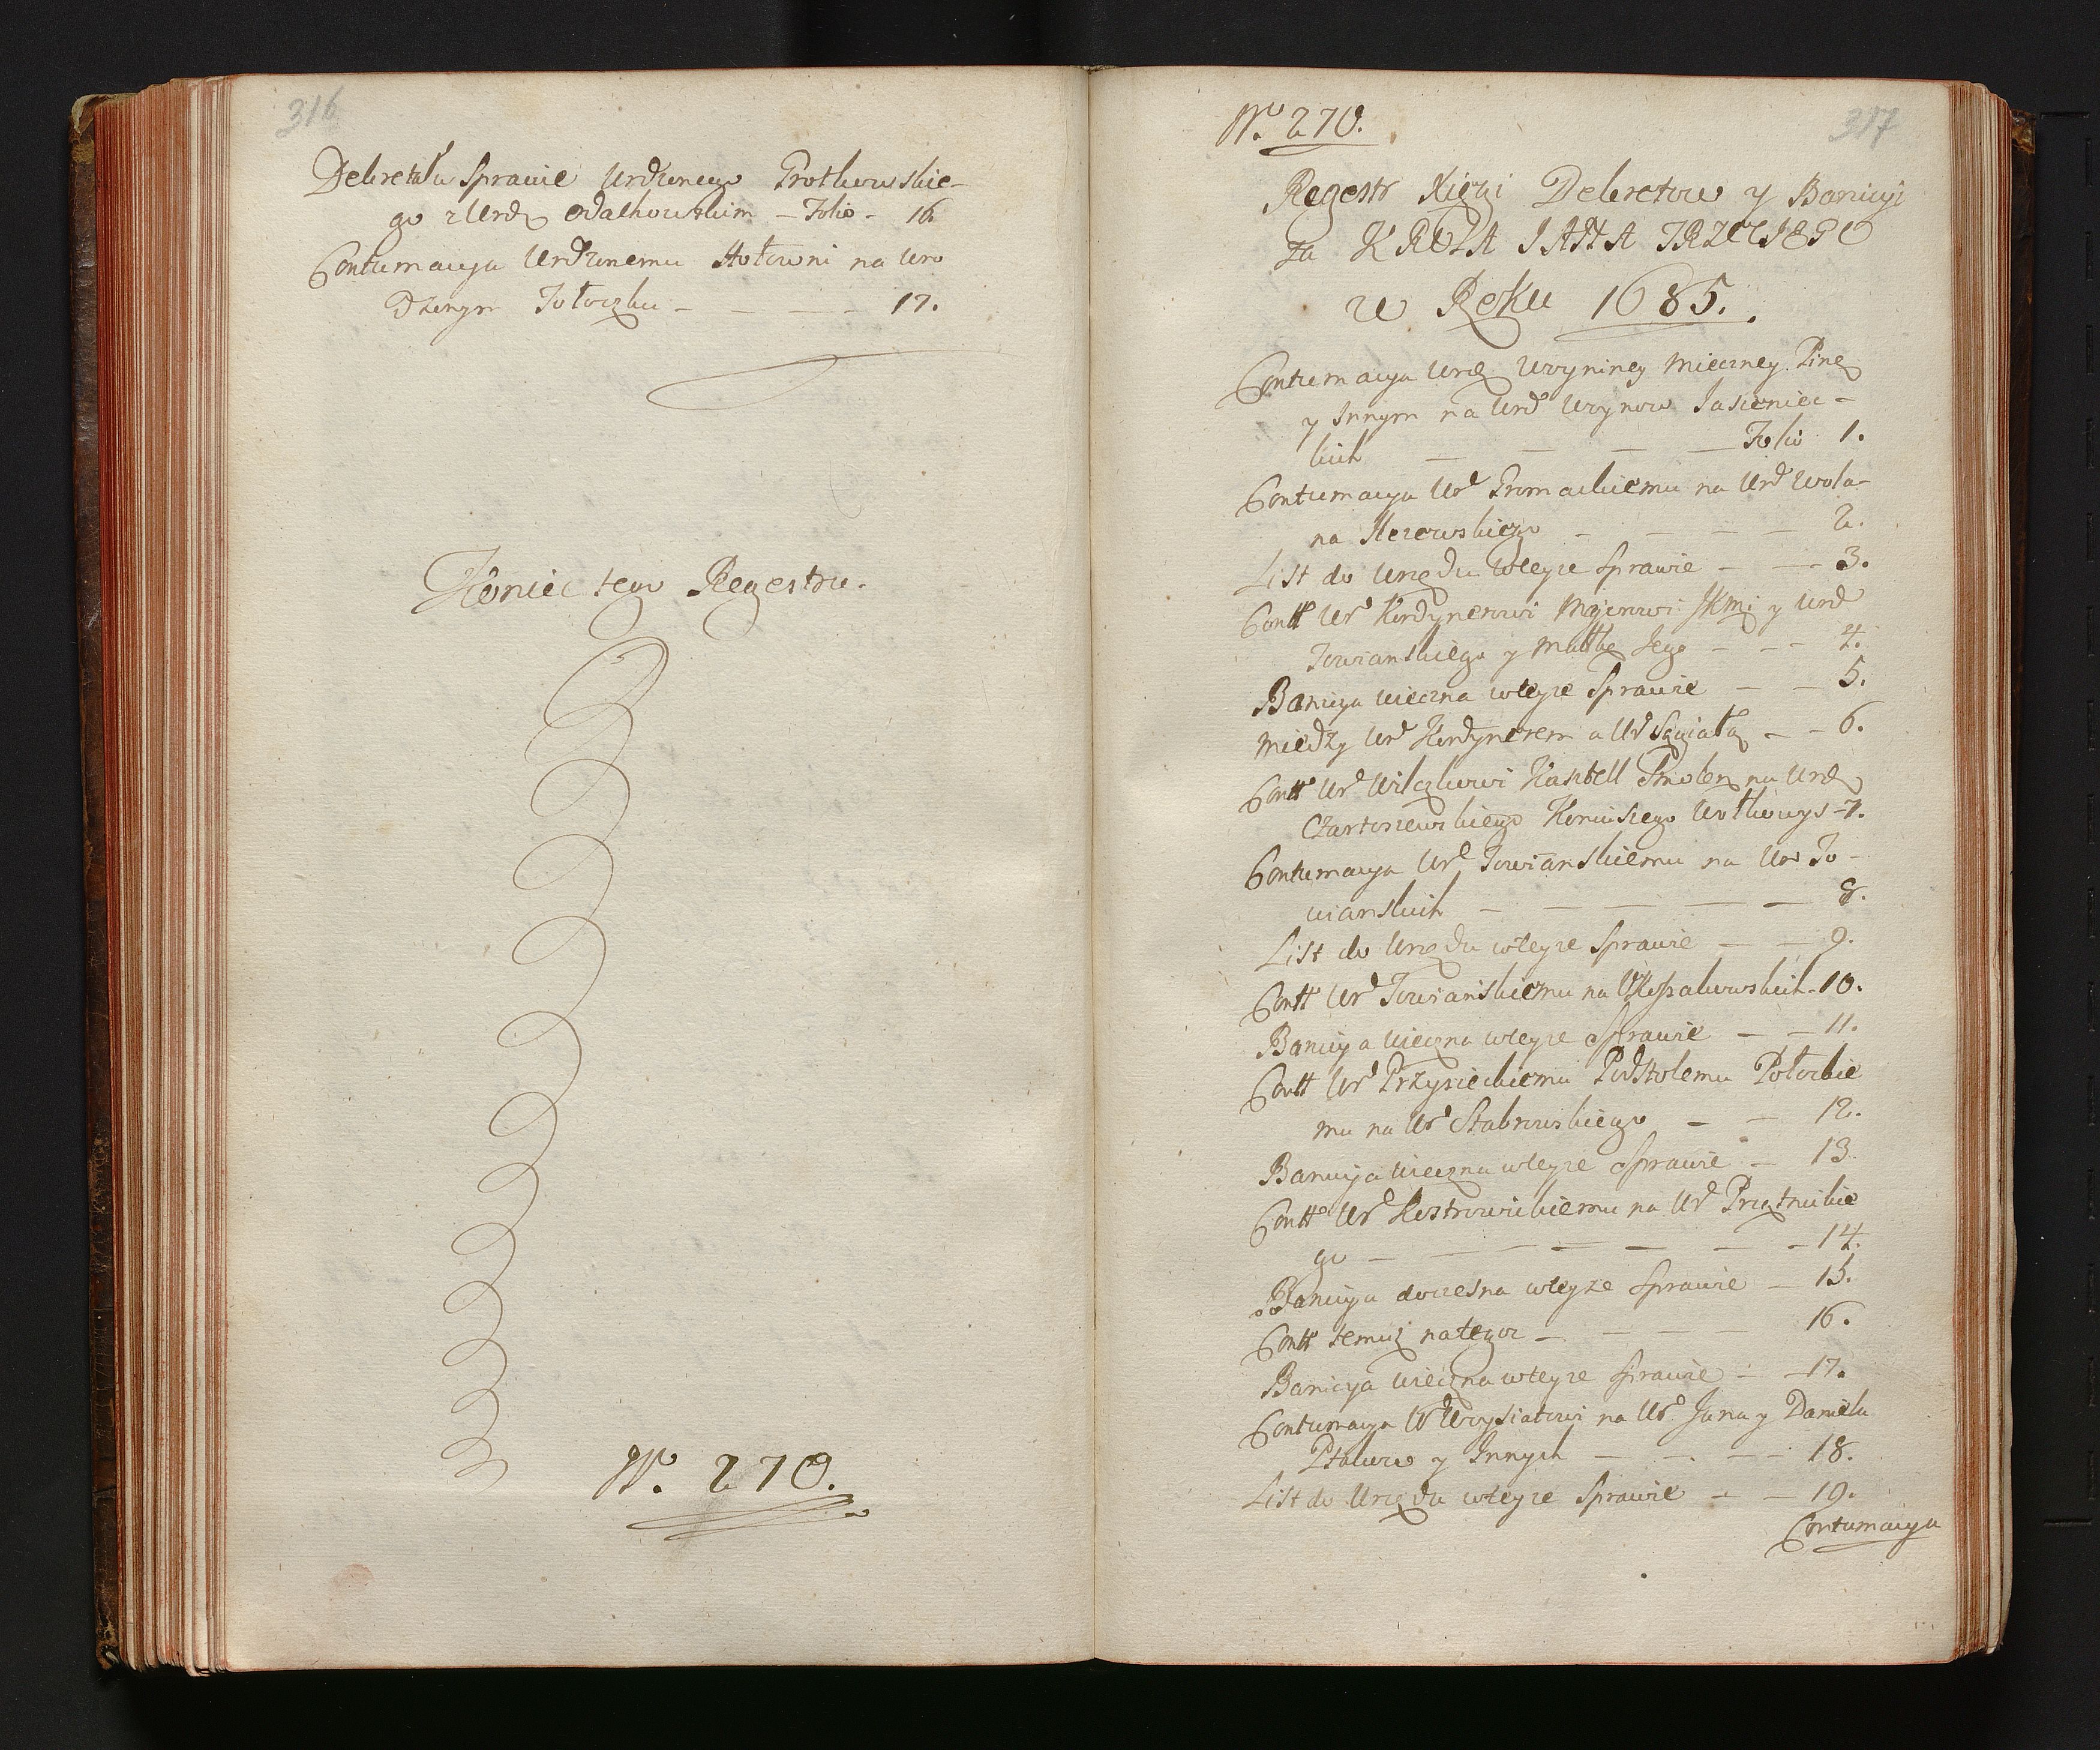 316
Dekret w Sprawie Urdzonego Protkowskie-
go z Urdz Odachowskim - Folio - 16
Contumacya Urdzonemu Hołowni na Uro
dzonym Tołoczku - - - - 17.
Koniec tego Regestru.
No. 270.
No. 270.
317
Regestr Xięgi Dekretow y Banicyi
za KROLA JANA TRZECIEGO
w Roku 1685.
Contumacya Urd Woyniney Mieczney Pinę
y Innym na Urd Woynow Jasieniec-
kich - - - - Folio 1.
Contumacya Urd Gromackiemu na Urd Wola-
na - - - - 2.
List do Urzędu wteyze Sprawie - - 3.
Contt Urd Kordynerowi Majorowi JKmi y Urd
Towianskiego y Małkę Jego - - - 4.
Banicya wieczna wteyze Sprawie - - 5.
Miedzy Urd Kordynerem a Urd - - 6.
Contt Urd Wilczkowi Kasztell Smolen na Urd
Czartoszewskiego Koniuszego Wołkowys - 7.
Contumacya Urd Towianskiemu na Uro To-
wianskich - - - - - 8.
List do Urzędu wteyze Sprawie - - 9.
Contt Urd Towianskiemu na Kossakowskich - 10.
Banicya wieczna wteyze Sprawie - - 11.
Contt Urd Przysieckiemu Podstolemu Połockie
mu na Urd Stabrowskiego - - 12.
Banicya wieczna wteyze Sprawie - 13.
Contt Urd Kostrowickiemu na Urd Przętnickie
go - - - - - - - 14.
Banicya doczesna wteyze Sprawie - 15.
Contt temuz nategoz - - - - 16.
Banicya wieczna wteyze Sprawie - - 17.
Contumacya Urd Woysiatowi na Urd Jana y Daniela
Ptakow y Innych - - - - 18.
List do Urzędu wteyze Sprawie - - 19.
Contumacya